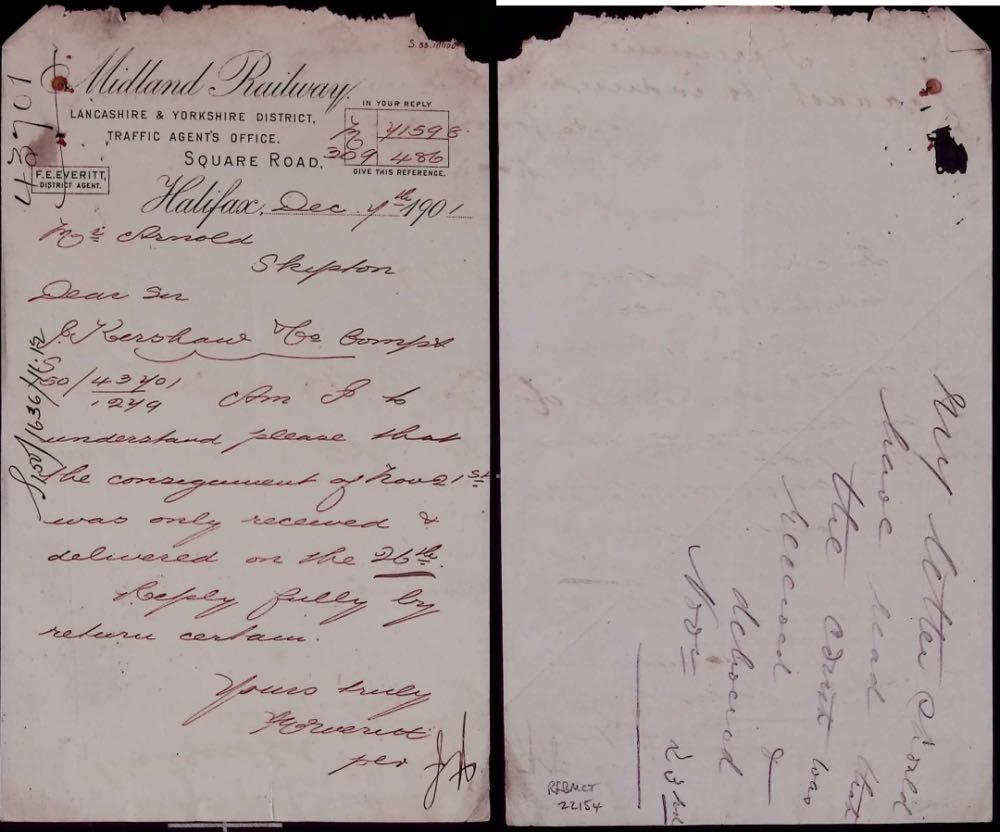 S.33.
Midland Railway.
LANCASHIRE & YORKSHIRE DISTRICT,
TRAFFIC AGENT'S OFFICE.
SQUARE ROAD,
IN YOUR REPLY
M 41598
309 486
GIVE THIS REFERENCE.
F.E. EVERITT,
DISTRICT AGENT.
43701
Halifax, Dec. 7th 1901
Mr Arnold
Skipton
Dear Sir
Kershaw & Co Compt
S
50/43701
1249 Am I to
understand please that
the consignment of Nov 21st
was only received &
delivered on the 26th.
Reply fully by
return certain.
Yours truly
F E Everitt
per
S 150/1636/11.12
My letter should
have read that
the consnt was
received &
delivered
Nov 23rd
RFBMCT
22154